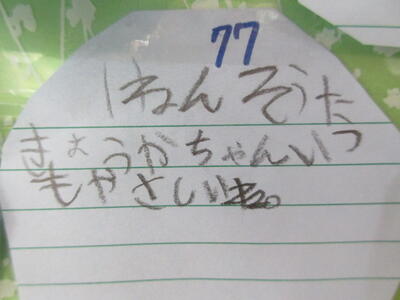 77
1ねんそうた
きょうかちゃんいつ
もやさしいね。